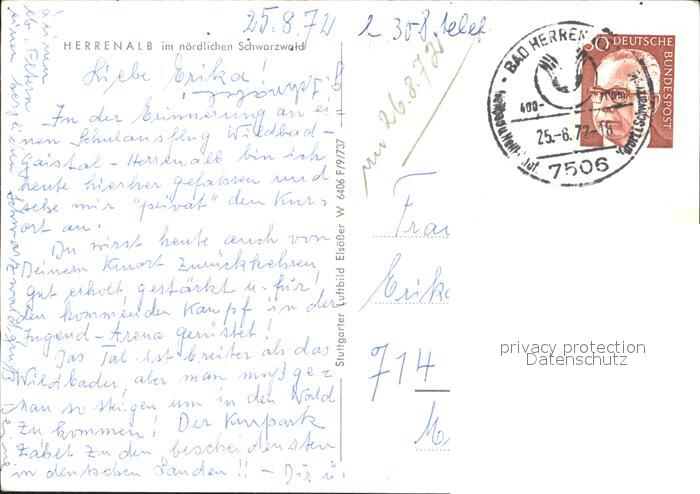 25.8.72
2.308. telef.
HERRENALB im nördlichen Schwarzwald
Liebe Erika!
In der Erinnerung an ei-
nen Schulausflug Wildbad-
Gaistal-Herrenalb bin ich
heute hierher gefahren und
sehe mir "privat" den Kur-
ort an.
Du wirst heute auch von
Deinem Kurort zurückkehren,
gut erholt gestärkt u. für
den kommenden Kampf in der
Jugend-Arena gerüstet!
Das Tal ist breiter als das
Wildbader, aber man muß ge-
nau so steigen um in den Wald
zu kommen! Der Kurpark
zählt zu den bescheidensten
in deutschen Landen!! - Dir u.
Deinen
lb. Eltern
einen herzlichen Schwarzwaldgruß
Stuttgarter Luftbild Elsäßer W 6406 F/9/737
26.8.72
BAD HERREN
25.-8.72-18
7506
DEUTSCHE
BUNDESPOST
Frau
Erika
714
privacy protection
Datenschutz